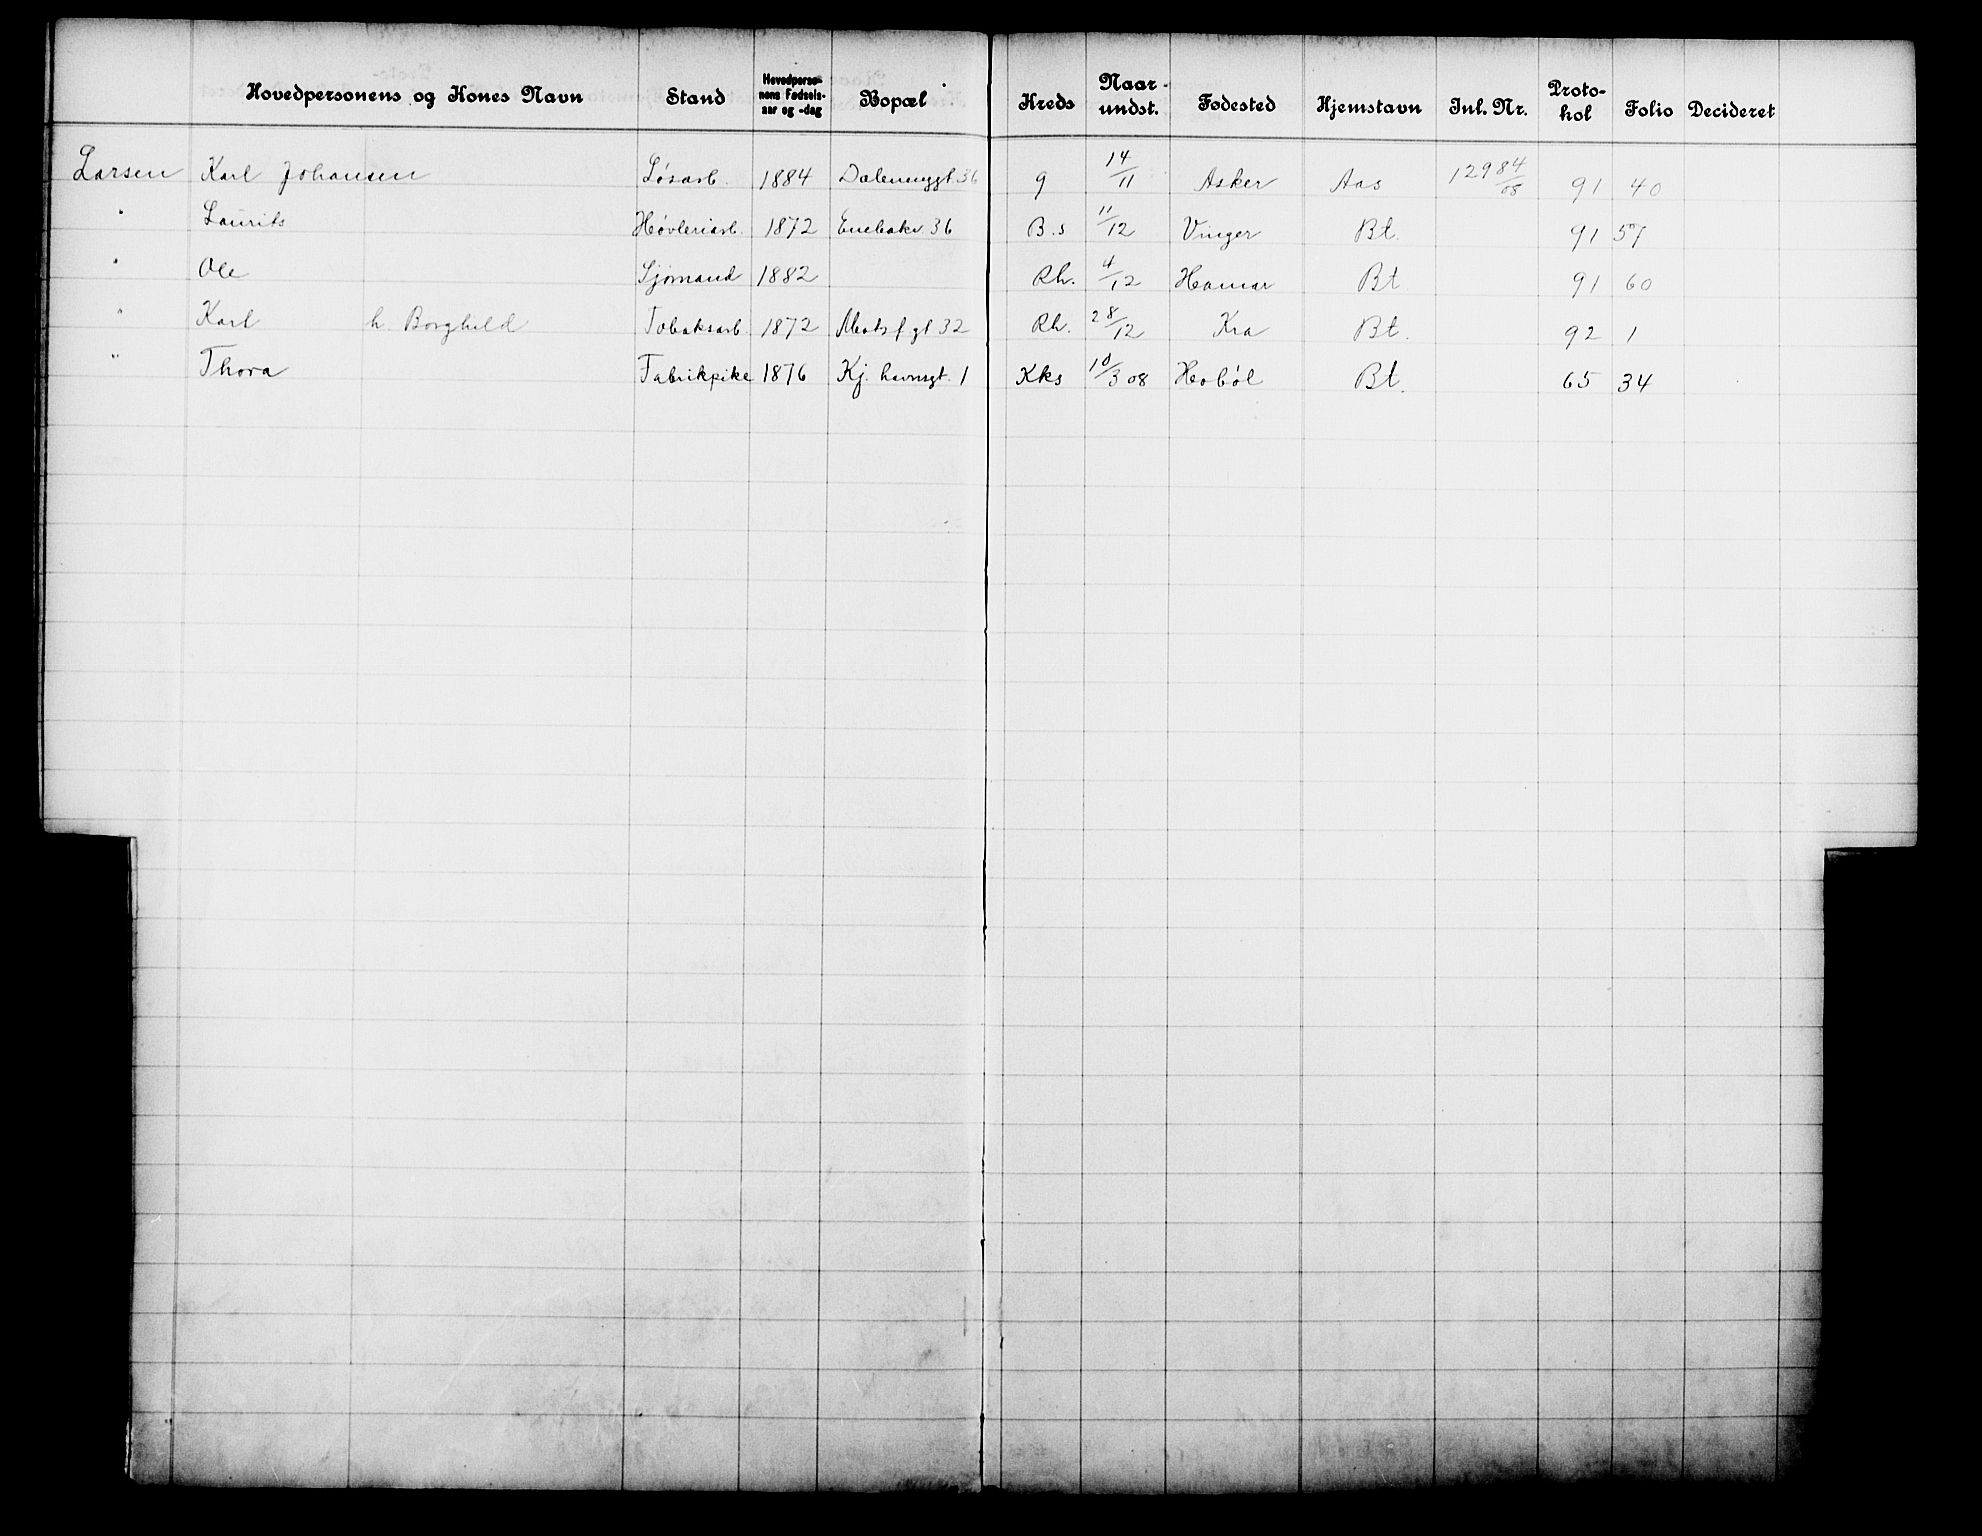 Hovedpersonens og Kones Navn Stand Hovedpersonens Fødselsaar og -dag Bopæl Kreds Naar undst. Fødested Hjemstavn Inl. Nr. Protokol Folio Decideret
Larsen Karl Johansen Løsarb. 1884 Dælenenggt. 36 9 14/11 Asker Aas 129 84/08 91 40
" Laurits Høvleriarb. 1872 Enebakv. 36 B.s 11/12 Vinger Bt. 91 57
" Ole Sjømand 1882 Rh. 4/12 Hamar Bt 91 60
" Karl h. Borghild Tobaksarb. 1872 gt 32 Rh. 28/12 Kra Bt. 92 1
" Thora Fabrikpike 1876 Kj. havnsgt. 1 Kks 10/3 08 Hobøl Bt. 65 34